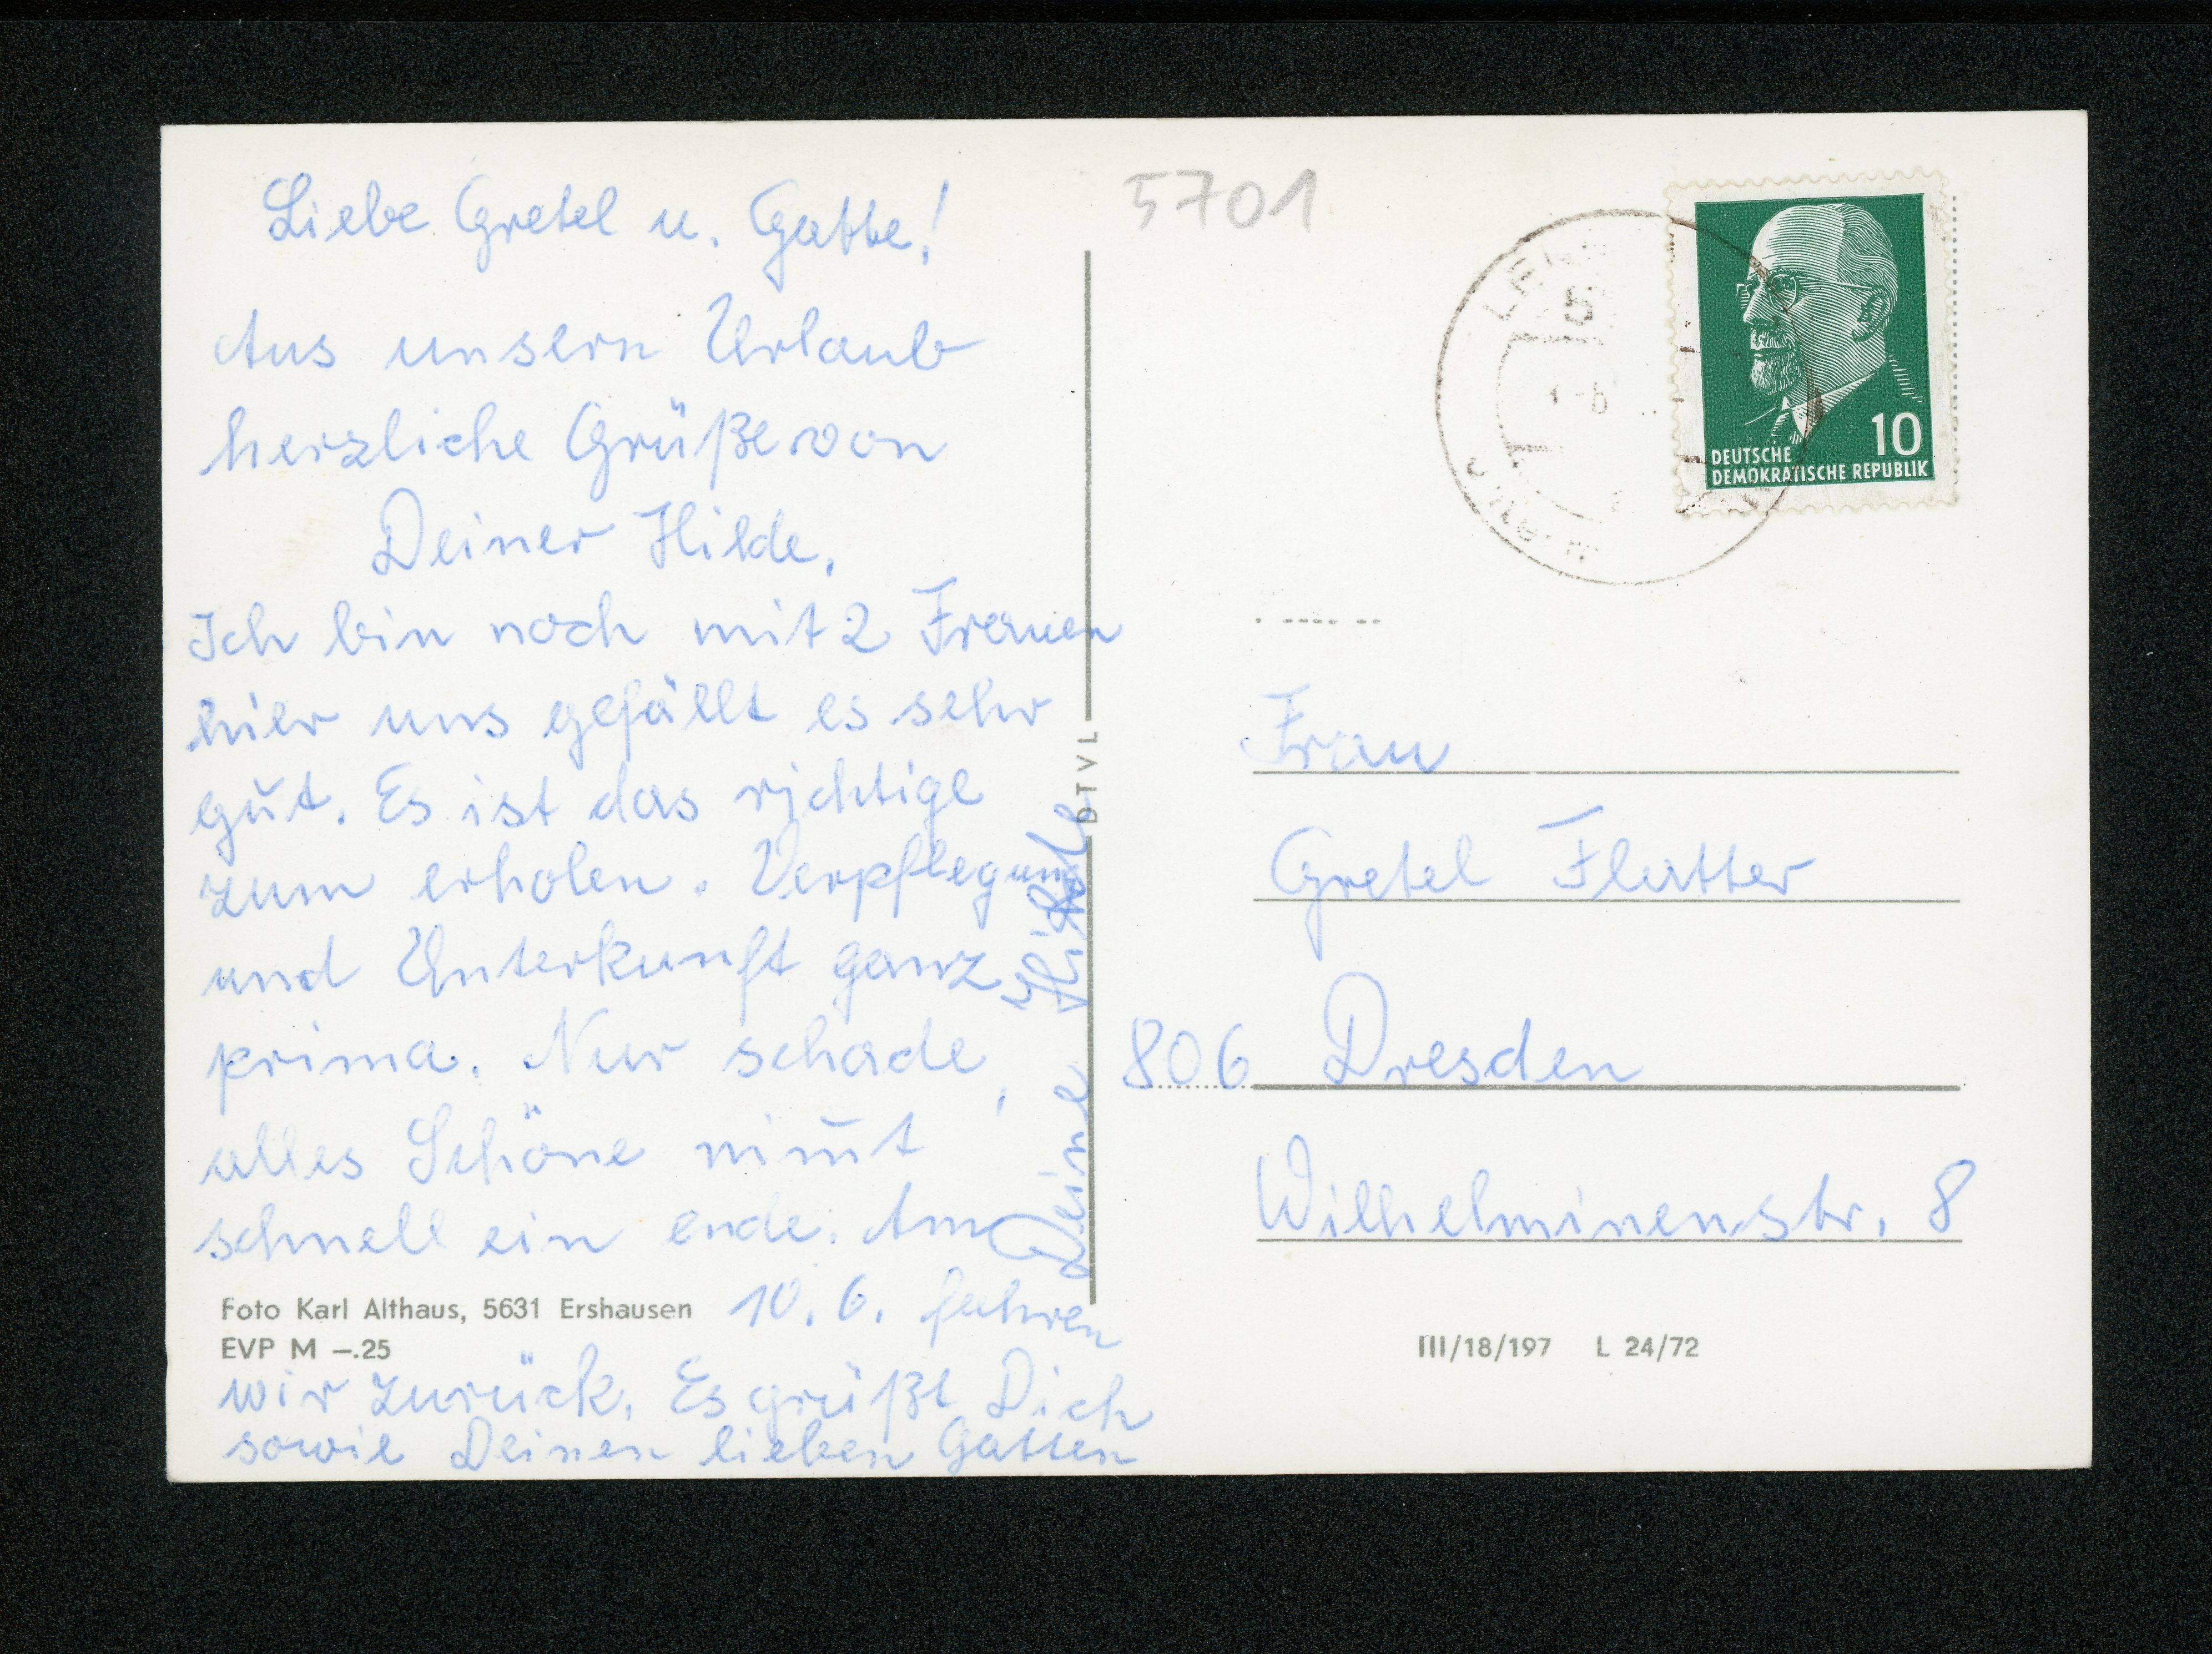 Liebe Gretel u. Gatte!
Aus unsern Urlaub
herzliche Grüße von
Deiner Hilde.
Ich bin noch mit 2 Frauen
hier uns gefällt es sehr
gut. Es ist das richtige
zum erholen. Verpflegung
und Unterkunft ganz
prima. Nur schade,
alles Schöne nim̄t
schnell ein ende. Am
10. 6. fahren
wir zurück. Es grüßt Dich
sowie Deinen lieben Gatten
Deine Hilde
Foto Karl Althaus, 5631 Ershausen
EVP M –.25
DTVL
5701
10
DEUTSCHE
DEMOKRATISCHE REPUBLIK
Frau
Gretel Flatter
806 Dresden
Wilhelminenstr. 8
III/18/197 L 24/72